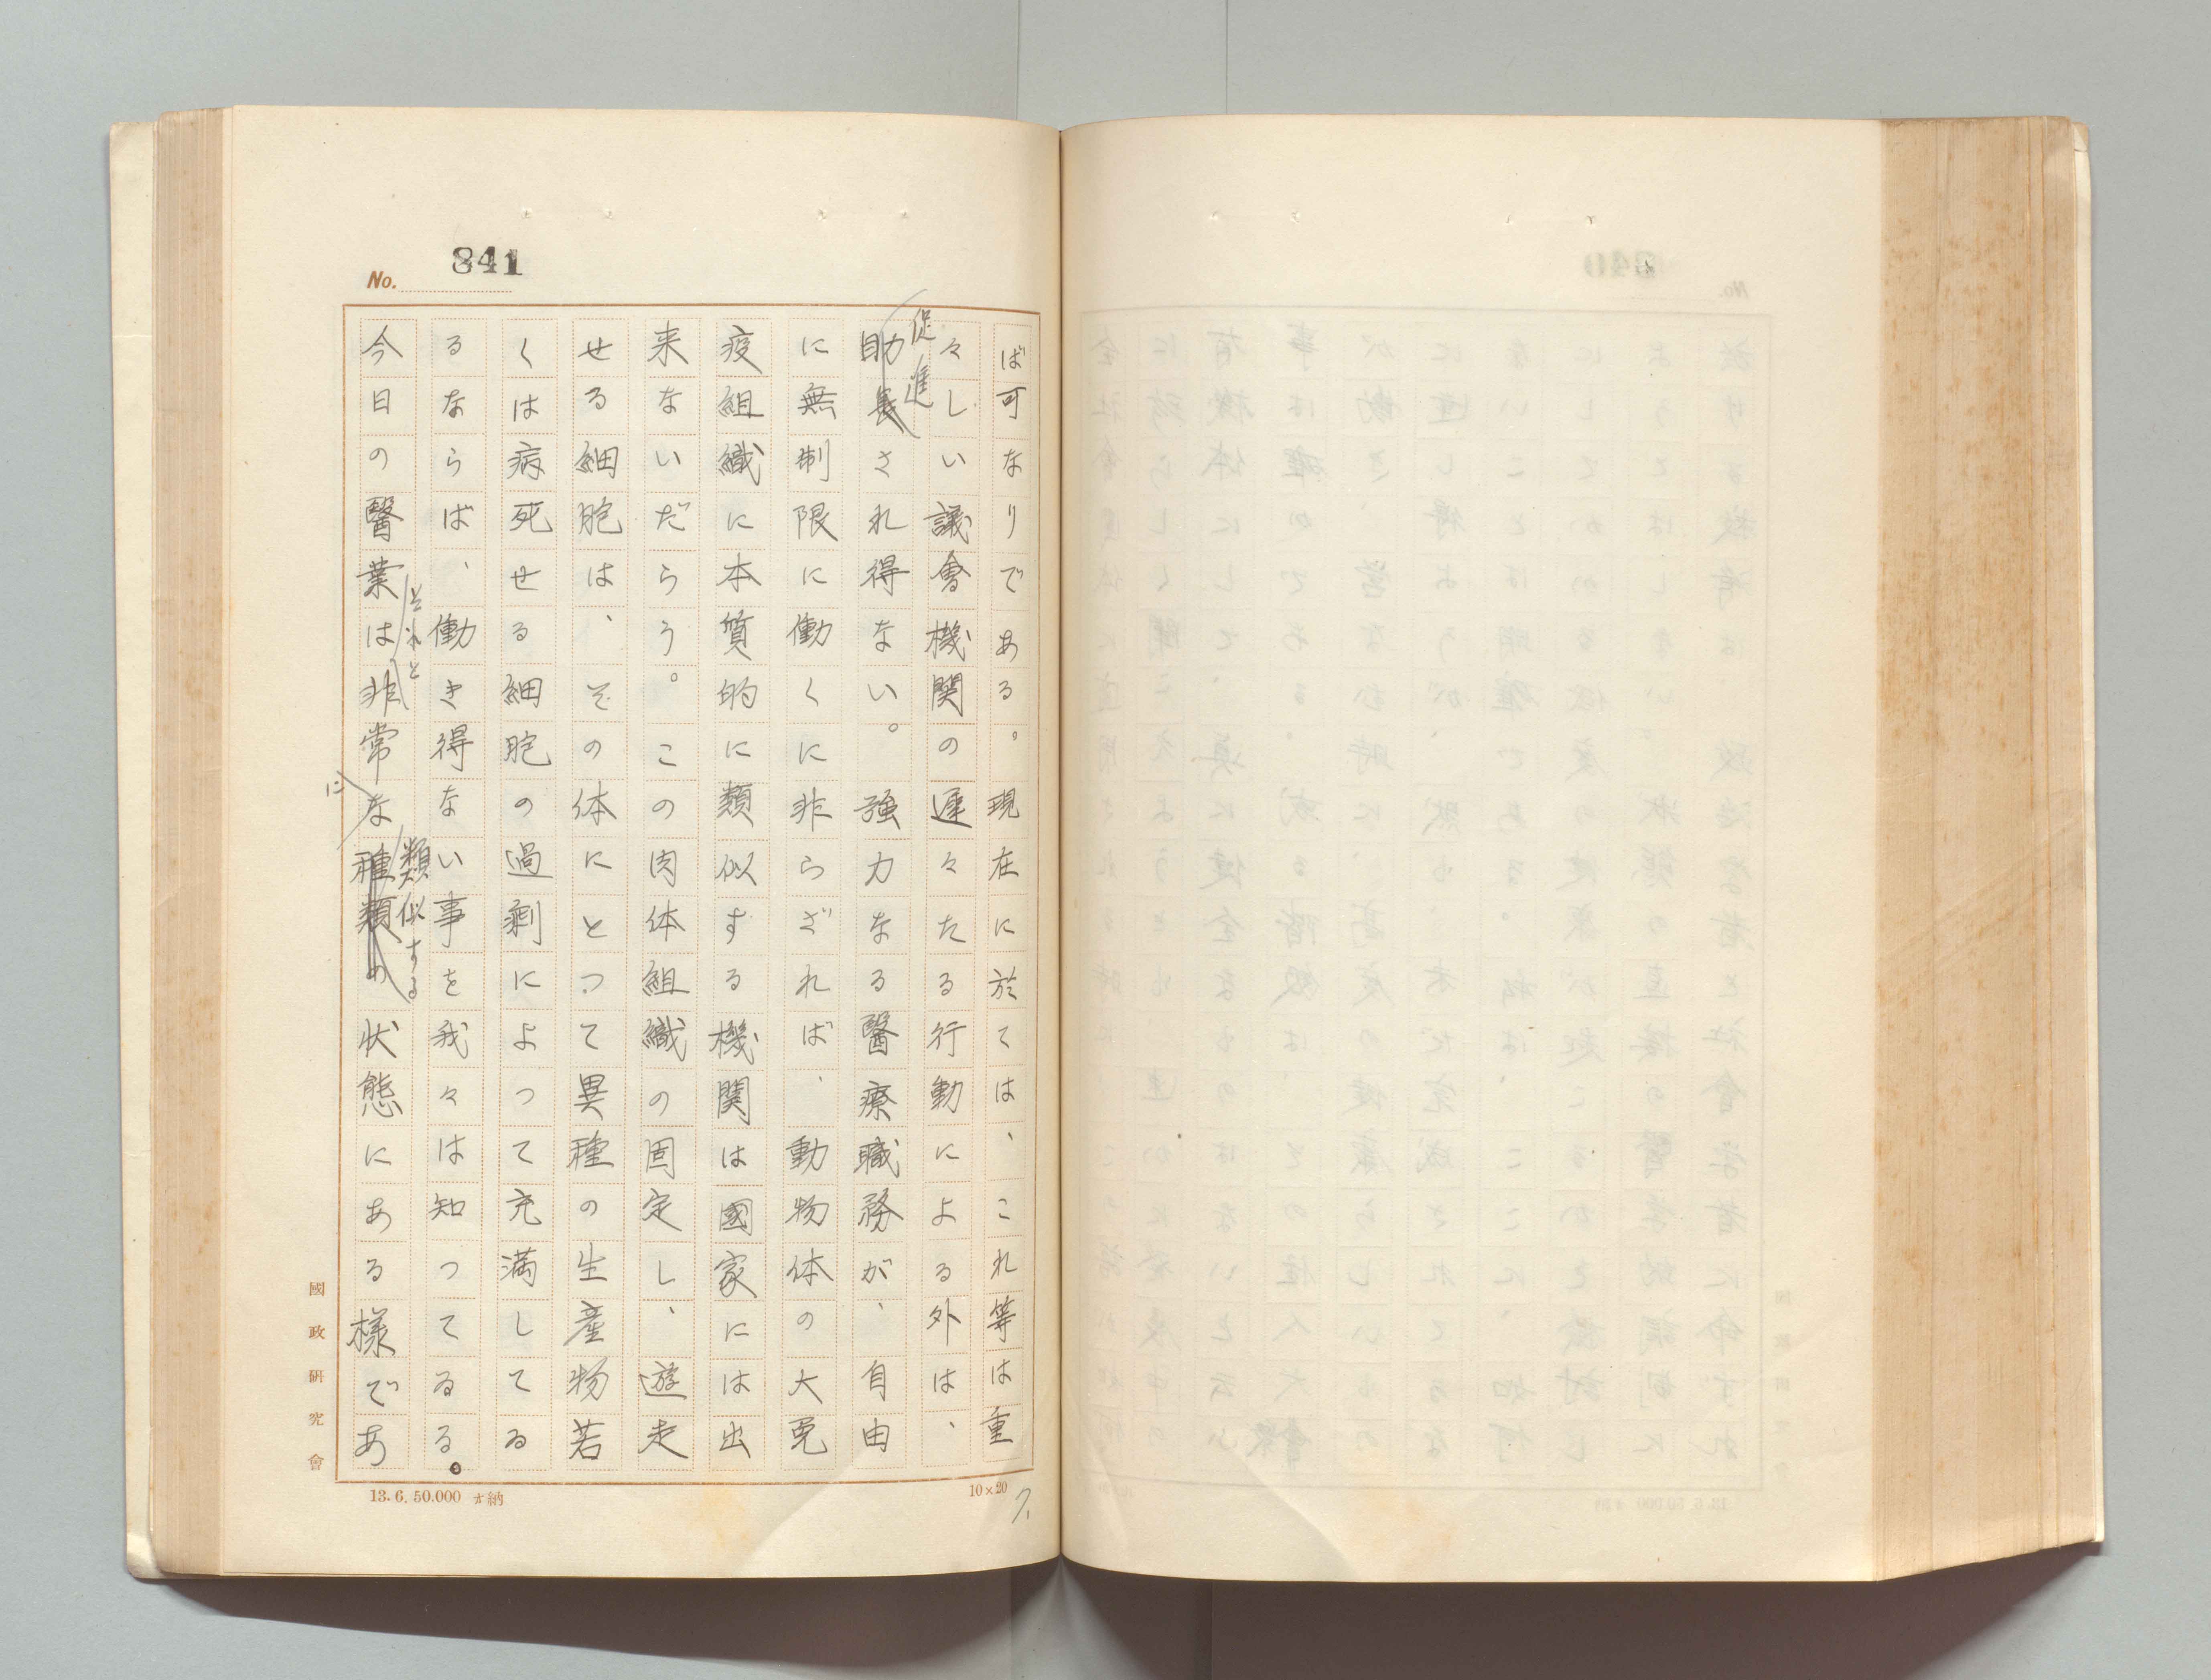 No. 841
ば可なりである。現在に於ては、これ等は重
々しい議會機関の遅々たる行動による外は、
促進
助長され得ない。強力なる醫療職務が、自由
に無制限に働くに非らざれば、動物体の大免
疫組織に本質的に類似する機関は國家には出
来ないだらう。この肉体組織の固定し、遊走
せる細胞は、その体にとつて異種の生産物若
くは病死せる細胞の過剰によつて充満してゐ
るならば、働き得ない事を我々は知つてゐる。
それと
類似する
今日の醫業は非常な種類の状態にある様であ
に
國政研究會
10×20
13.6.50.000 納
7.